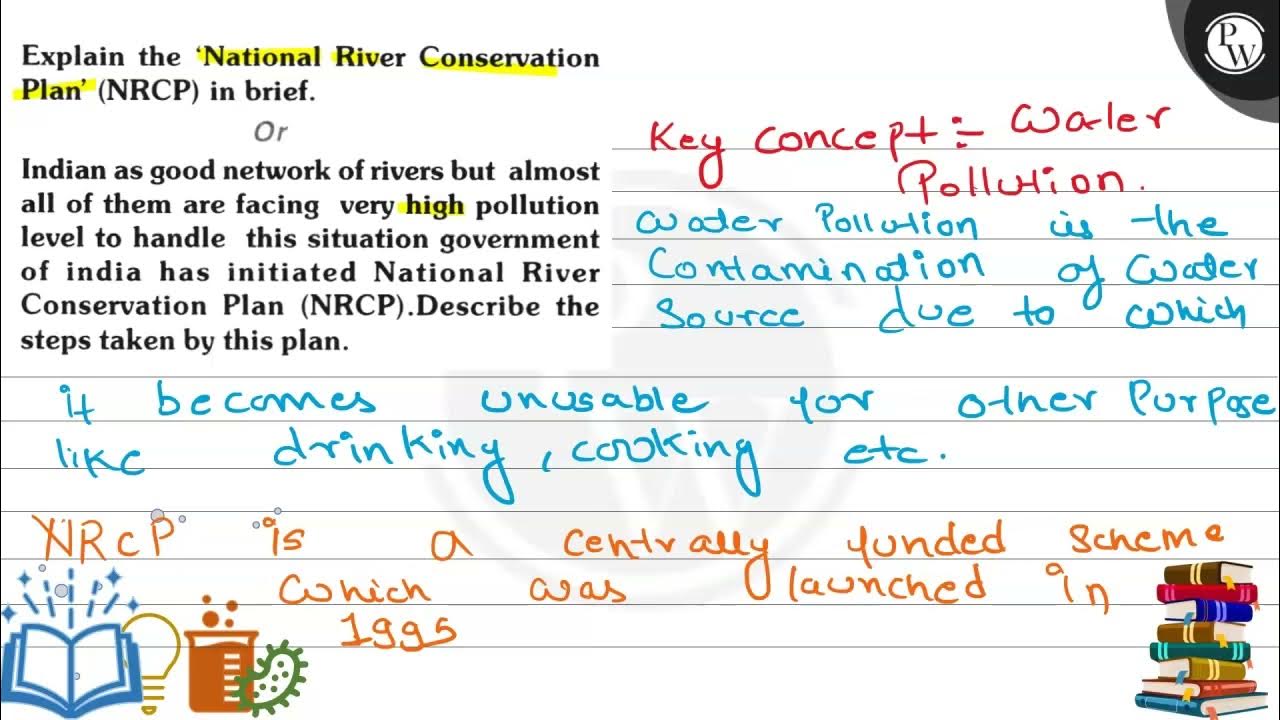 Explain the 'National River Conservation
Plan' (NRCP) in brief.
Or
Indian as good network of rivers but almost
all of them are facing very high pollution
level to handle this situation government
of india has initiated National River
Conservation Plan (NRCP).Describe the
steps taken by this plan.
PW
Key concept :- Water
Pollution.
Water Pollution is the
Contamination of Water
Source due to which
it becomes unusable for other Purpose
like drinking, cooking etc.
NRCP is a centrally funded scheme
which was launched in
1995